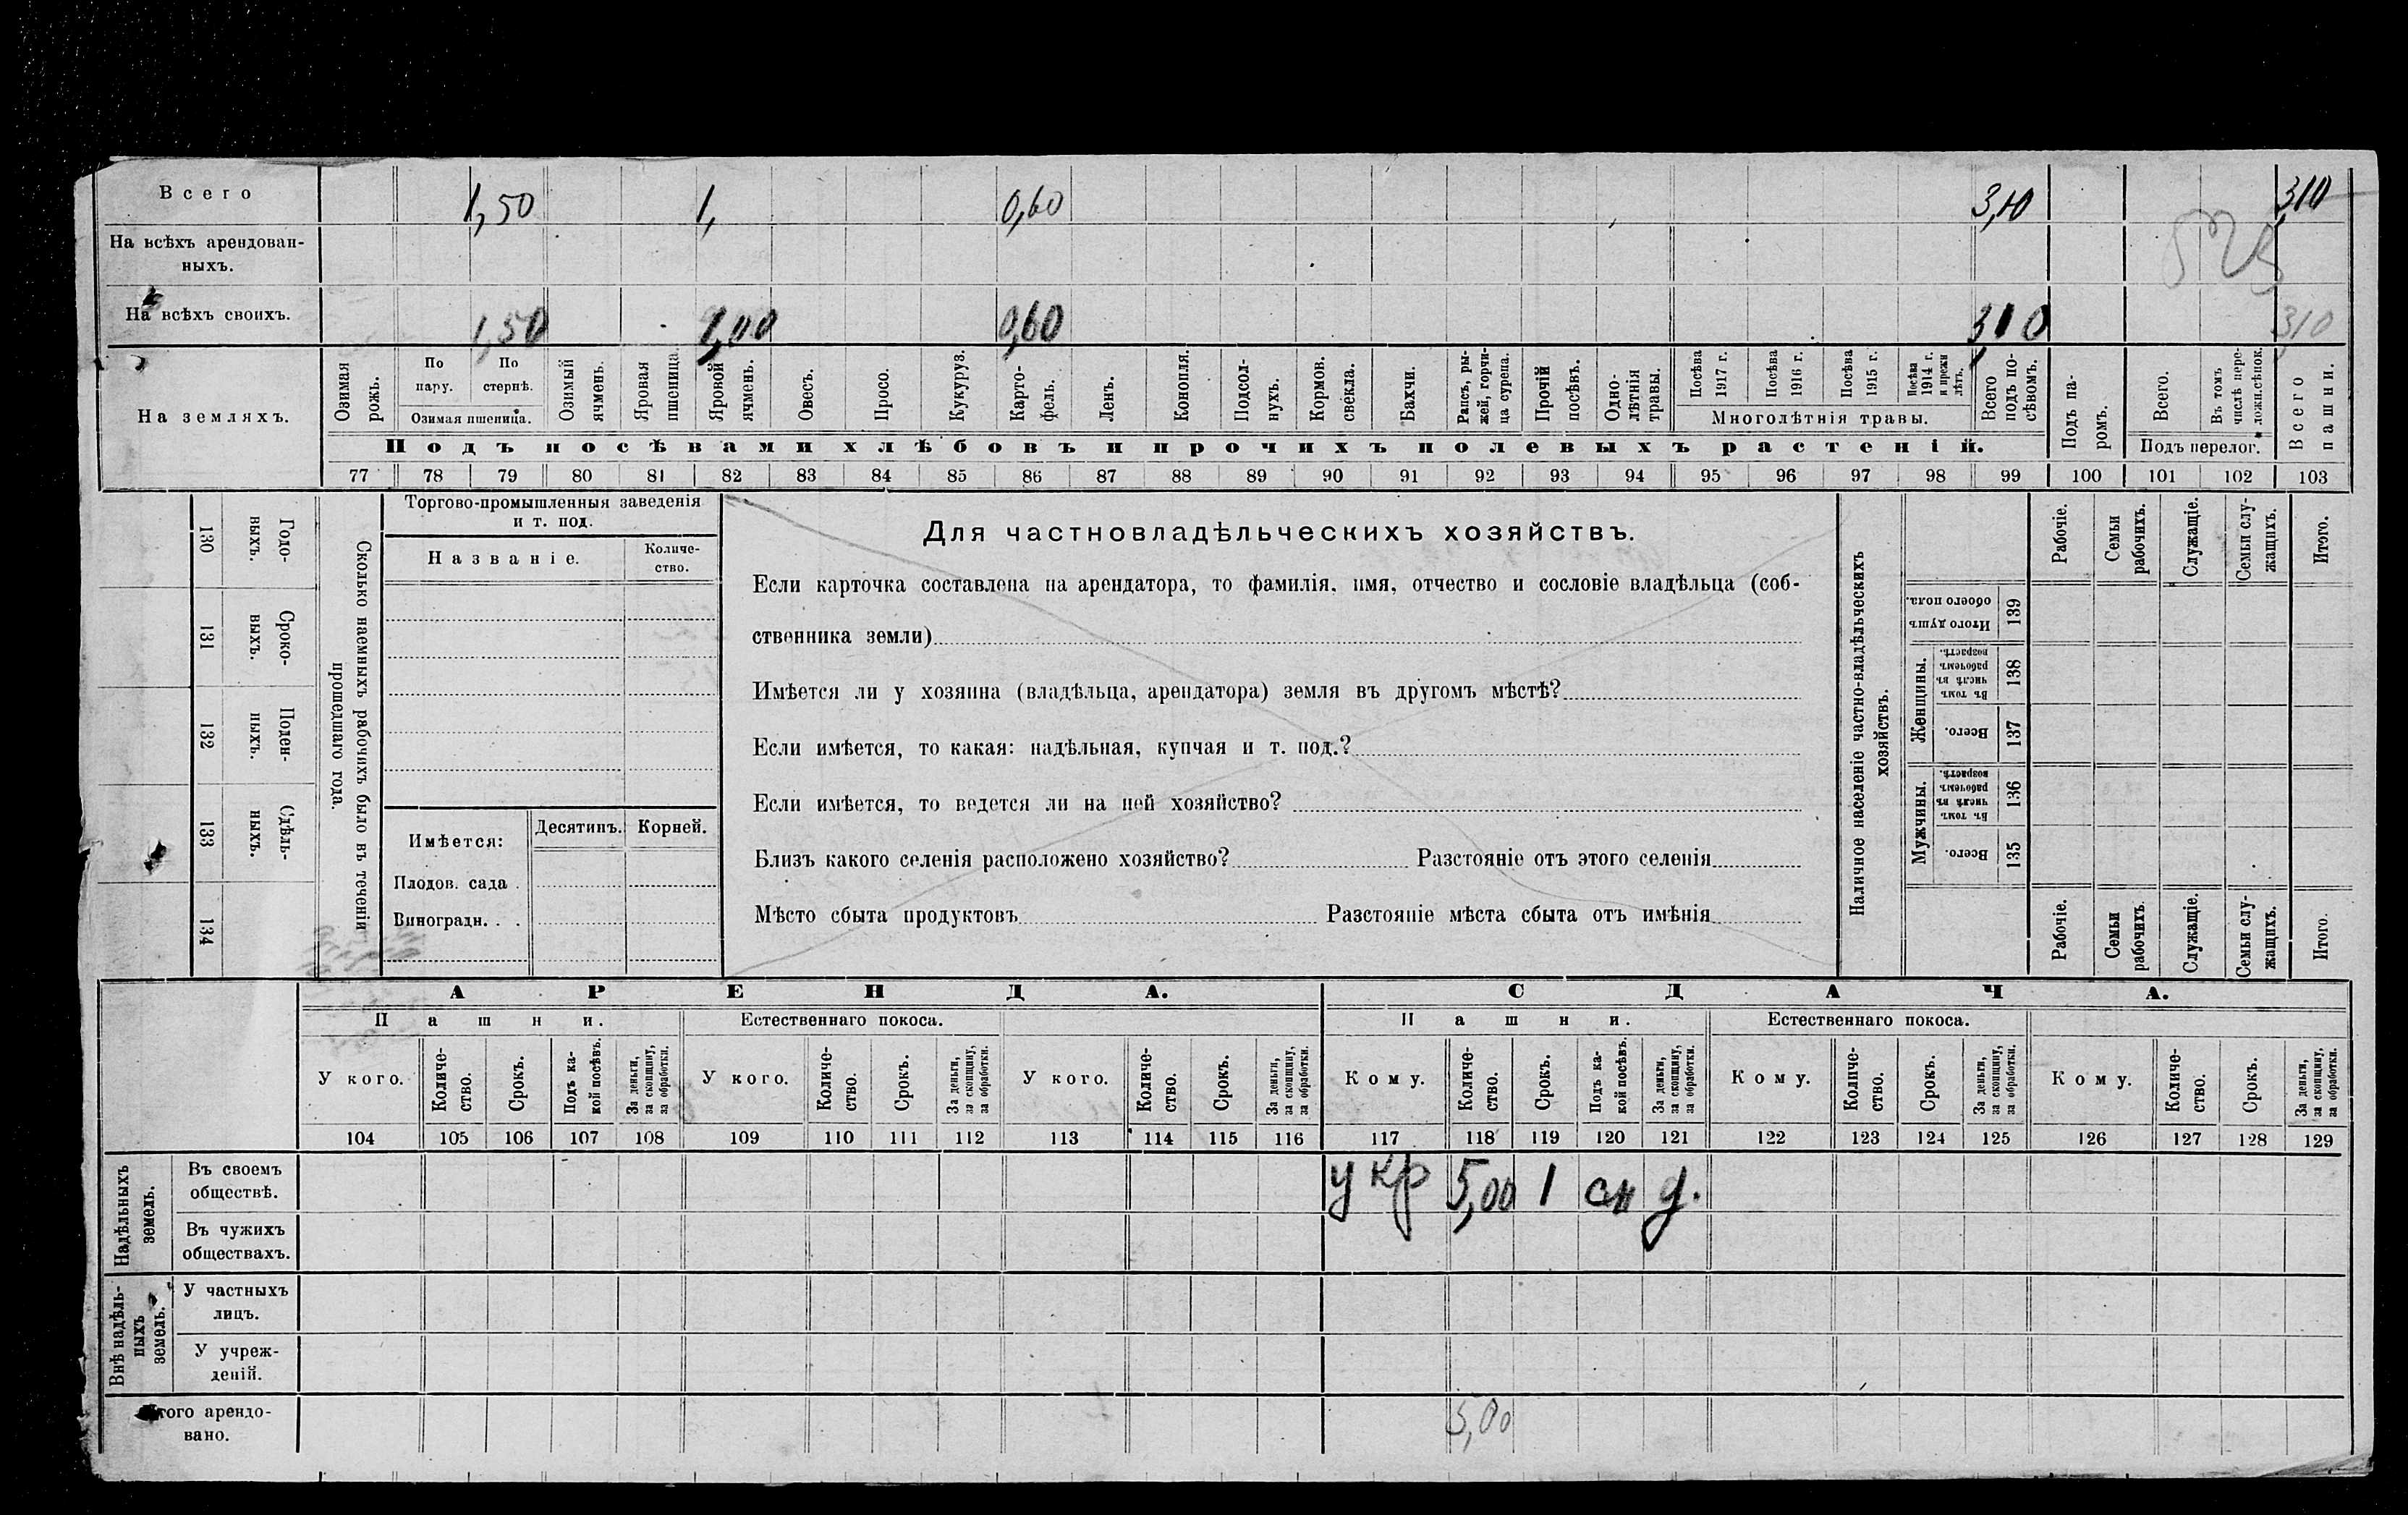 Всего 1,50 1, 0,60 3,10 3,10
На всѣхъ арендован-
ныхъ.
На всѣхъ своихъ. 1,50 1,00 0,60 3,10 3,10
На земляхъ.
Озимая рожь.
По пару.
По стернѣ.
Озимая пшеница.
Озимый ячмень.
Яровая пшеница.
Яровой ячмень.
Овесъ.
Просо.
Кукуруз.
Карто-
фель.
Ленъ.
Конопля.
Подсол-
нухъ.
Кормов. свекла.
Бахчи.
Рапсъ, ры-
жей, горчи-
ца сурепа.
Прочій посѣвъ.
Одно-
лѣтнія травы.
Посѣва 1917 г.
Посѣва 1916 г.
Посѣва 1915 г.
Посѣва 1914 г. и прежн лѣтъ.
Многолѣтнія травы.
Всего подъ по-
сѣвомъ.
Подъ па-
ромъ.
Всего.
Въ томъ числѣ пере-
ложн.сѣнок.
Подъ перелог.
Всего пашни.
Подъ посѣвами хлѣбовъ и прочихъ полевыхъ растеній.
77 78 79 80 81 82 83 84 85 86 87 88 89 90 91 92 93 94 95 96 97 98 99 100 101 102 103
130 Годо-
выхъ.
131 Сроко-
выхъ.
132 Поден-
ныхъ.
133 Сдѣль-
ныхъ.
134
Сколько наемныхъ рабочихъ было въ теченіи
прошедшаго года.
Торгово-промышленныя заведенія
и т. под.
Названіе.
Количе-
ство.
Имѣется:
Десятинъ.
Корней.
Плодов. сада .
Виноградн. . .
Для частновладѣльческихъ хозяйствъ.
Если карточка составлена на арендатора, то фамилія, имя, отчество и сословіе владѣльца (соб-
ственника земли)
Имѣется ли у хозяина (владѣльца, арендатора) земля въ другомъ мѣстѣ?
Если имѣется, то какая: надѣльная, купчая и т. под.?
Если имѣется, то ведется ли на ней хозяйство?
Близъ какого селенія расположено хозяйство? Разстояніе отъ этого селенія
Мѣсто сбыта продуктовъ Разстояніе мѣста сбыта отъ имѣнія
Наличное населеніе частно-владѣльческихъ
хозяйствъ.
Рабочіе.
Семьи рабочихъ.
Служащіе.
Семьи слу-
жащихъ.
Итого.
Итого душъ обоего пола. 139
Женщины.
Въ томъ числѣ въ рабочемъ возрастѣ. 138
Всего. 137
Мужчины.
Въ томъ числѣ въ рабочемъ возрастѣ. 136
Всего. 135
Рабочіе.
Семьи рабочихъ.
Служащіе.
Семьи слу-
жащихъ.
Итого.
АРЕНДА. СДАЧА.
Пашни. Естественнаго покоса. Пашни. Естественнаго покоса.
У кого.
Количе-
ство.
Срокъ.
Подъ ка-
кой посѣвъ.
За деньги, за скопщину, за обработки.
У кого.
Количе-
ство.
Срокъ.
За деньги, за скопщину, за обработки.
У кого.
Количе-
ство.
Срокъ.
За деньги, за скопщину, за обработки.
Кому.
Количе-
ство.
Срокъ.
Подъ ка-
кой посѣвъ.
За деньги, за скопщину, за обработки.
Кому.
Количе-
ство.
Срокъ.
За деньги, за скопщину, за обработки.
Кому.
Количе-
ство.
Срокъ.
За деньги, за скопщину, за обработки.
104 105 106 107 108 109 110 111 112 113 114 115 116 117 118 119 120 121 122 123 124 125 126 127 128 129
Надѣльныхъ земель.
Въ своемъ
обществѣ.
у кр 5,00 1 сн д.
Въ чужихъ
обществахъ.
Внѣ надѣль-
ныхъ земель.
У частныхъ
лицъ.
У учреж-
деній.
Итого арендо-
вано.
5,00